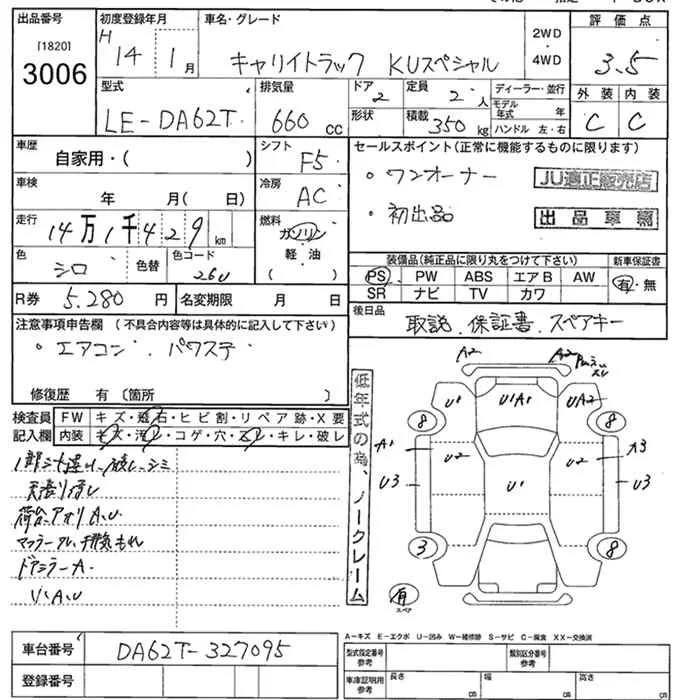 出品番号
[1820]
3006
初度登録年月
H 14 年 1 月
車名・グレード
キャリイトラック KUスペシャル
2WD
・
4WD
評価点
3.5
外装 内装
C C
型式
LE-DA62T
排気量
660 cc
ドア
2
形状
定員
2 人
積載
350 kg
ディーラー・並行
モデル年式 年
ハンドル 左・右
車歴
自家用・( )
シフト
F5
セールスポイント(正常に機能するものに限ります)
・ワンオーナー
・初出品
JU適正販売店
出品車両
車検
年 月( 日)
冷房
AC
走行
14万1千429 km
燃料
ガソリン
軽油
( )
色
シロ
色替
色コード
26U
装備品(純正品に限り丸をつけて下さい)
新車保証書
PS PW ABS エアB AW
SR ナビ TV カワ
有・無
R券 5.280 円
名変期限 月 日
後日品
取説.保証書.スペアキー
注意事項申告欄(不具合内容等は具体的に記入して下さい)
・エアコン.パワステ
修復歴 有〔箇所 〕
検査員
記入欄
FW キズ・飛石・ヒビ割・リペア跡・X要
内装 キズ・汚レ・コゲ・穴・スレ・キレ・破レ
ドアミラーA.
低年式の為、ノークレーム
A2 A2
U1 U1A1 UA2
8 8
A1 U2 U2 A3
U3 U1 U3
3 8
有
スペア
A-キズ E-エクボ U-凹み W-補修跡 S-サビ C-腐食 XX-交換済
車台番号
DA62T-327095
登録番号
型式指定番号
参考
類別区分番号
参考
車庫証明用
参考
長さ cm 幅 cm 高さ cm